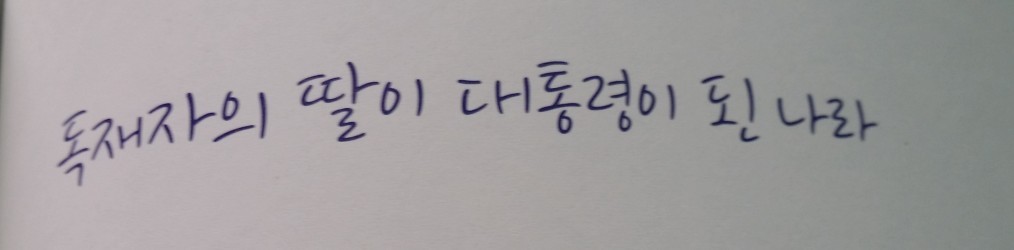 독재자의 딸이 대통령이 된 나라